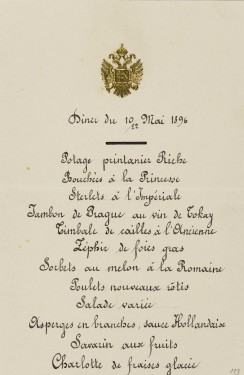 Diner du 10/22 Mai 1896
Potage printanier Riche
Bouchées à la Princesse
Sterlets à l'Impériale
Jambon de Prague au vin de Tokay
Timbale de cailles à l'Ancienne
Zéphir de foies gras
Sorbets au melon à la Romaine
Poulets nouveaux rôtis
Salade variée
Asperges en branches, sauce Hollandaise
Savarin aux fruits
Charlotte de fraises glacée